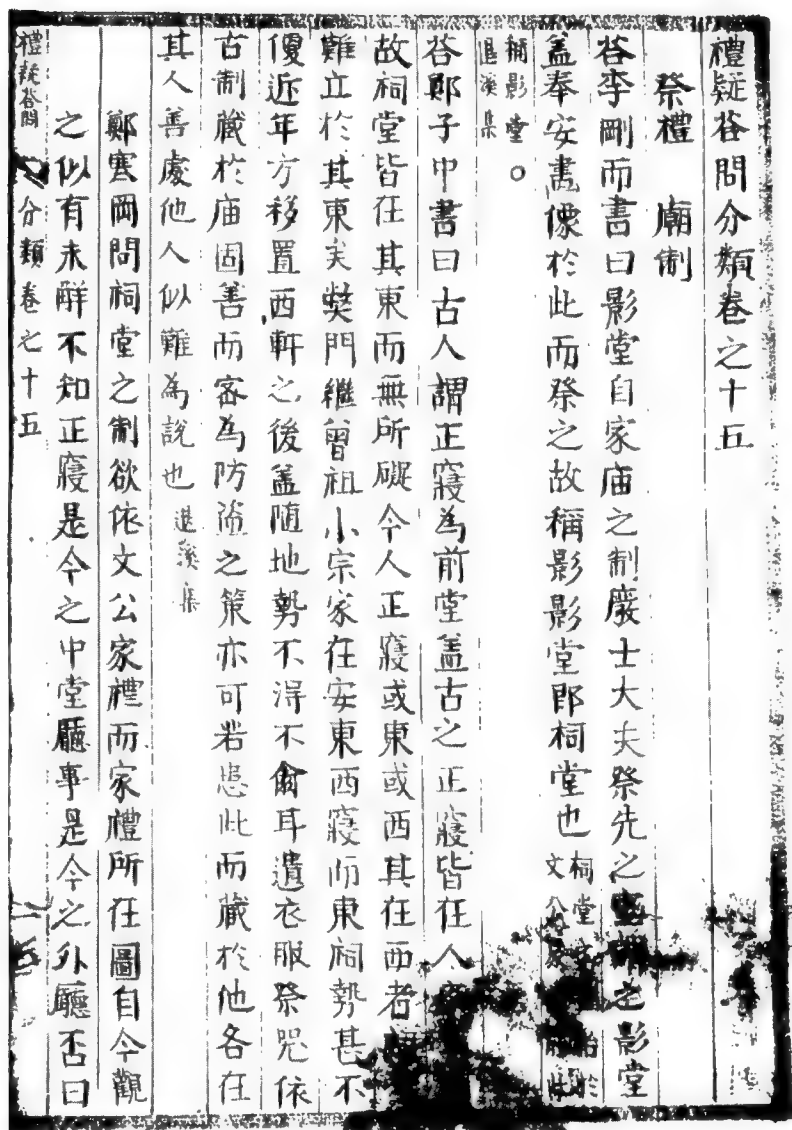 禮疑答問分類卷之十五
祭禮 廟制
答李剛而書曰影堂自家庙之制廢士大夫祭先之室謂之影堂
盖奉安畵像於此而祭之故稱影影堂即祠堂也 祠堂 始於 文公 前此
稱影堂 退溪集 ○
答鄭子中書曰古人謂正寢為前堂盖古之正寢皆在人
故祠堂皆在其東而無所礙今人正寢或東或西其在西者
難立於其東矣獘門繼曾祖小宗家在安東西寢而東祠勢甚不
便近年方移置西軒之後盖随地勢不淂不尒耳遺衣服祭器依
古制藏於庙固善而密為防盗之策亦可若患此而藏於他各在
其人善處他人似難為說也 退溪集
鄭寒岡問祠堂之制欲依文公家禮而家禮所在圖自今觀
之似有未詳不知正寢是今之中堂廳事是今之外廳否曰
禮疑答問 分類卷之十五